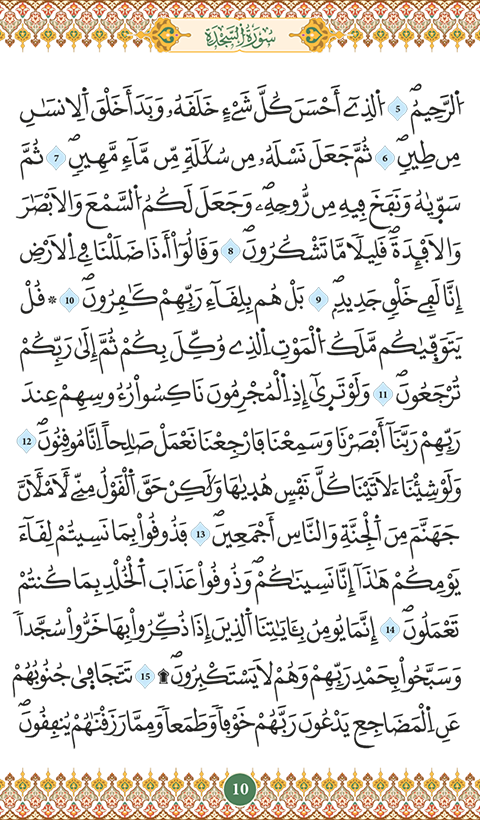 سُورَةُ السَّجْدَةِ
اُ۬لرَّحِيمُۖ 5 اُ۬لذِےٓ أَحْسَنَ كُلَّ شَےْءٍ خَلَقَهُۥ وَبَدَأَ خَلْقَ اَ۬لِانسَٰنِ
مِن طِينٖۖ 6 ثُمَّ جَعَلَ نَسْلَهُۥ مِن سُلَٰلَةٖ مِّن مَّآءٖ مَّهِينٖۖ 7 ثُمَّ
سَوّ۪يٰهُ وَنَفَخَ فِيهِ مِن رُّوحِهِۦۖ وَجَعَلَ لَكُمُ اُ۬لسَّمْعَ وَالَابْصَٰرَ
وَالَافْـِٕدَةَۖ قَلِيلاٗ مَّا تَشْكُرُونَۖ 8 وَقَالُوٓاْ أَ.ذَا ضَلَلْنَا فِے اِ۬لَارْضِ
إِنَّا لَفِے خَلْقٖ جَدِيدِۢۖ 9 بَلْ هُم بِلِقَآءِ رَبِّهِمْ كَٰفِرُونَۖ 10 * قُلْ
يَتَوَفّ۪يٰكُم مَّلَكُ اُ۬لْمَوْتِ اِ۬لذِے وُكِّلَ بِكُمْ ثُمَّ إِلَىٰ رَبِّكُمْ
تُرْجَعُونَۖ 11 وَلَوْ تَر۪ىٰٓ إِذِ اِ۬لْمُجْرِمُونَ نَاكِسُواْ رُءُوسِهِمْ عِندَ
رَبِّهِمْ رَبَّنَآ أَبْصَرْنَا وَسَمِعْنَا فَارْجِعْنَا نَعْمَلْ صَٰلِحاً اِنَّا مُوقِنُونَۖ 12
وَلَوْ شِئْنَا ءَلَاتَيْنَا كُلَّ نَفْسٍ هُد۪يٰهَا وَلَٰكِنْ حَقَّ اَ۬لْقَوْلُ مِنِّے لَأَمْلَأَنَّ
جَهَنَّمَ مِنَ اَ۬لْجِنَّةِ وَالنَّاسِ أَجْمَعِينَۖ 13 فَذُوقُواْ بِمَا نَسِيتُمْ لِقَآءَ
يَوْمِكُمْ هَٰذَآ إِنَّا نَسِينَٰكُمْۖ وَذُوقُواْ عَذَابَ اَ۬لْخُلْدِ بِمَا كُنتُمْ
تَعْمَلُونَۖ 14 إِنَّمَا يُومِنُ بِـَٔايَٰتِنَا اَ۬لذِينَ إِذَا ذُكِّرُواْ بِهَا خَرُّواْ سُجَّداٗ
وَسَبَّحُواْ بِحَمْدِ رَبِّهِمْ وَهُمْ لَا يَسْتَكْبِرُونَ۩ۖ 15 تَتَجَاف۪ىٰ جُنُوبُهُمْ
عَنِ اِ۬لْمَضَاجِعِ يَدْعُونَ رَبَّهُمْ خَوْفاٗ وَطَمَعاٗ وَمِمَّا رَزَقْنَٰهُمْ يُنفِقُونَۖ
10